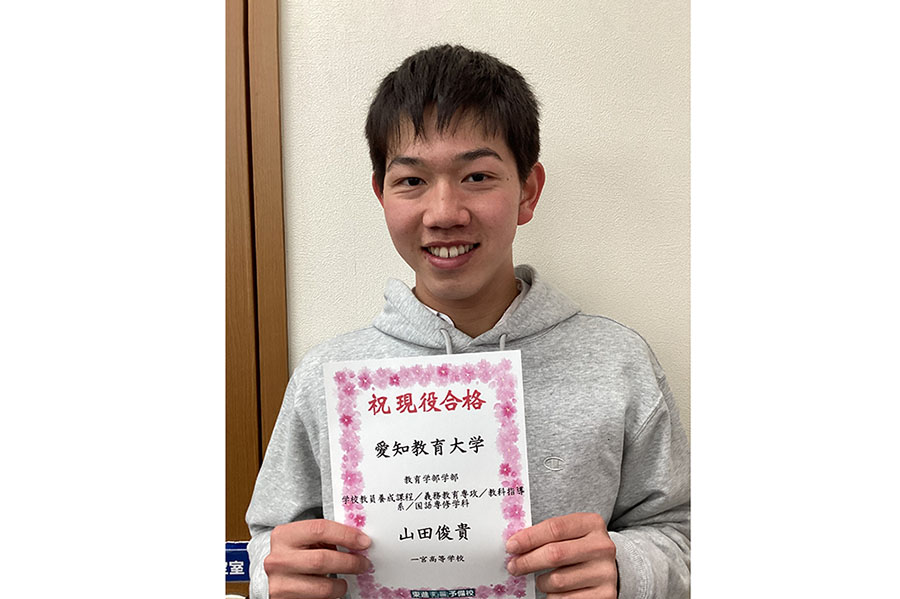 祝 現役合格
愛知教育大学
教育学部学部
学校教員養成課程／義務教育専攻／教科指導
系／国語専修学科
山田俊貴
一宮高等学校
東進衛星予備校
室